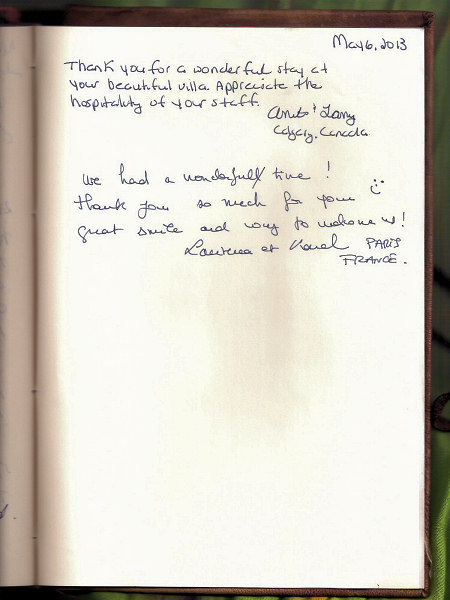 May 6, 2013
Thank you for a wonderful stay at
your beautiful villa. Appreciate the
hospitality of your staff.
Calgary, Canada
We had a wonderfull time !
thank you so much for your
great smile and way to welcome us!
et PARIS
FRANCE.